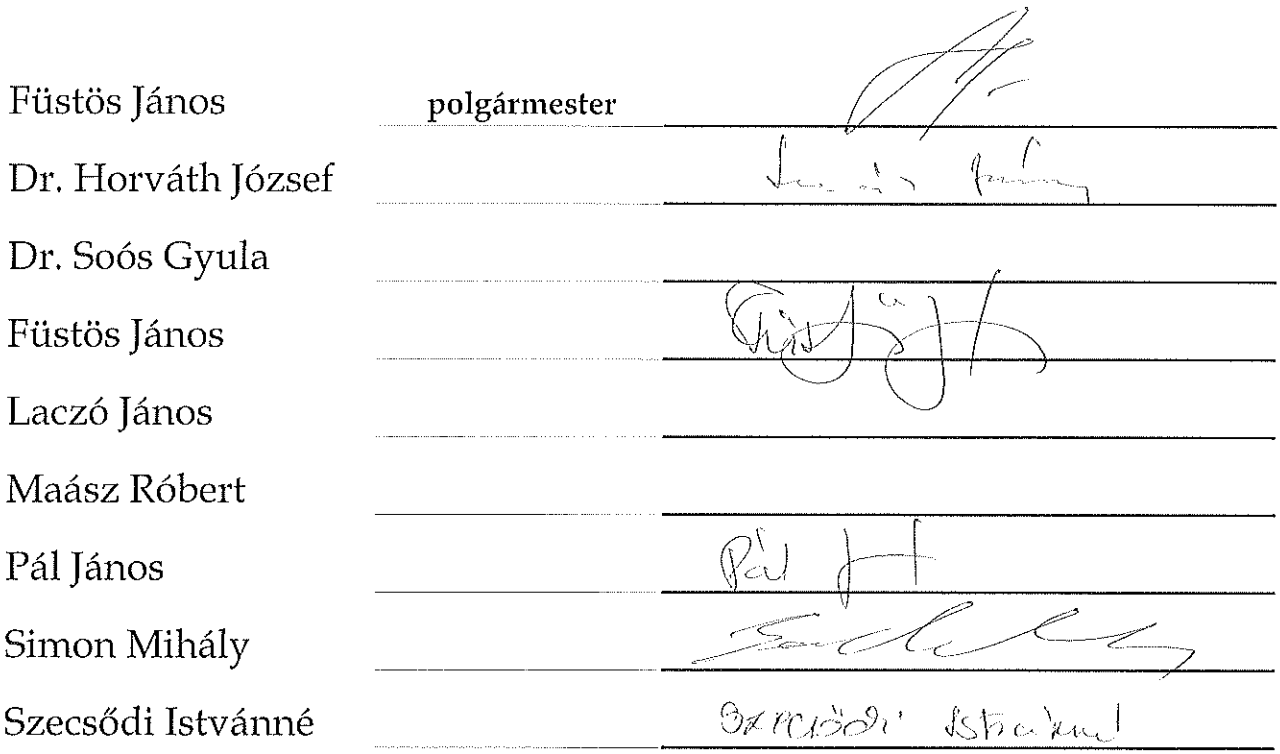 Füstös János polgármester
Dr. Horváth József
Dr. Soós Gyula
Füstös János
Laczó János
Maász Róbert
Pál János Pál
Simon Mihály
Szecsődi Istvánné